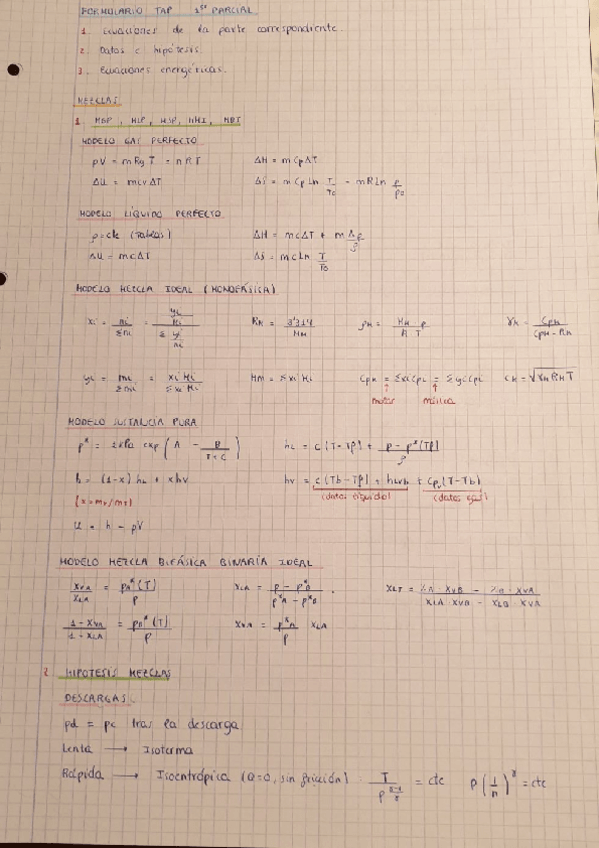 FORMULARIO TAP 1er PARCIAL
1. Ecuaciones de la parte correspondiente.
2. Datos e hipótesis.
3. Ecuaciones energéticas.
MEZCLAS
1. MGP, MLP, MSP, MMI, MBI
MODELO GAS PERFECTO
pV = mRgT = nRT    ΔH = mcpΔT
ΔU = mcvΔT    ΔS = mcp Ln T/T0 - mR Ln p/p0
MODELO LÍQUIDO PERFECTO
ρ = cte (Tablas)    ΔH = mcΔT + m Δp/ρ
ΔU = mcΔT    ΔS = mc Ln T/T0
MODELO MEZCLA IDEAL (MONOFÁSICA)
xi = ni/Σni = (yi/Mi)/(Σ yi/Mi)    RM = 8'314/MM    ρM = MM p/R T    γM = CpM/(CpM - RM)
yi = mi/Σmi = xi Mi/Σxi Mi    MM = Σxi Mi    CpM = Σxi cpi = Σyi cpi    CM = √(γM RM T)
molar    másica
MODELO SUSTANCIA PURA
p* = 1kPa exp (A - B/(T+C))    hL = c(T-Tβ) + (p - p*(Tβ))/ρ
h = (1-x) hL + xhv    hv = c(Tb-Tβ) + hLvb + cpv(T-Tb)
(x = mv/mT)    (datos líquido)    (datos gas)
u = h - pV
MODELO MEZCLA BIFÁSICA BINARIA IDEAL
xVA/xLA = pA*(T)/p    xLA = (p - p*B)/(p*A - p*B)
(1 - xVA)/(1 - xLA) = pB*(T)/p    xVA = p*A/p xLA
2 HIPOTESIS MEZCLAS
DESCARGAS.
pd = pc tras la descarga
Lenta → Isoterma
Rápida → Isoentrópica (Q=0, sin fricción) T/p^((γ-1)/γ) = cte    p(1/n)^γ = cte